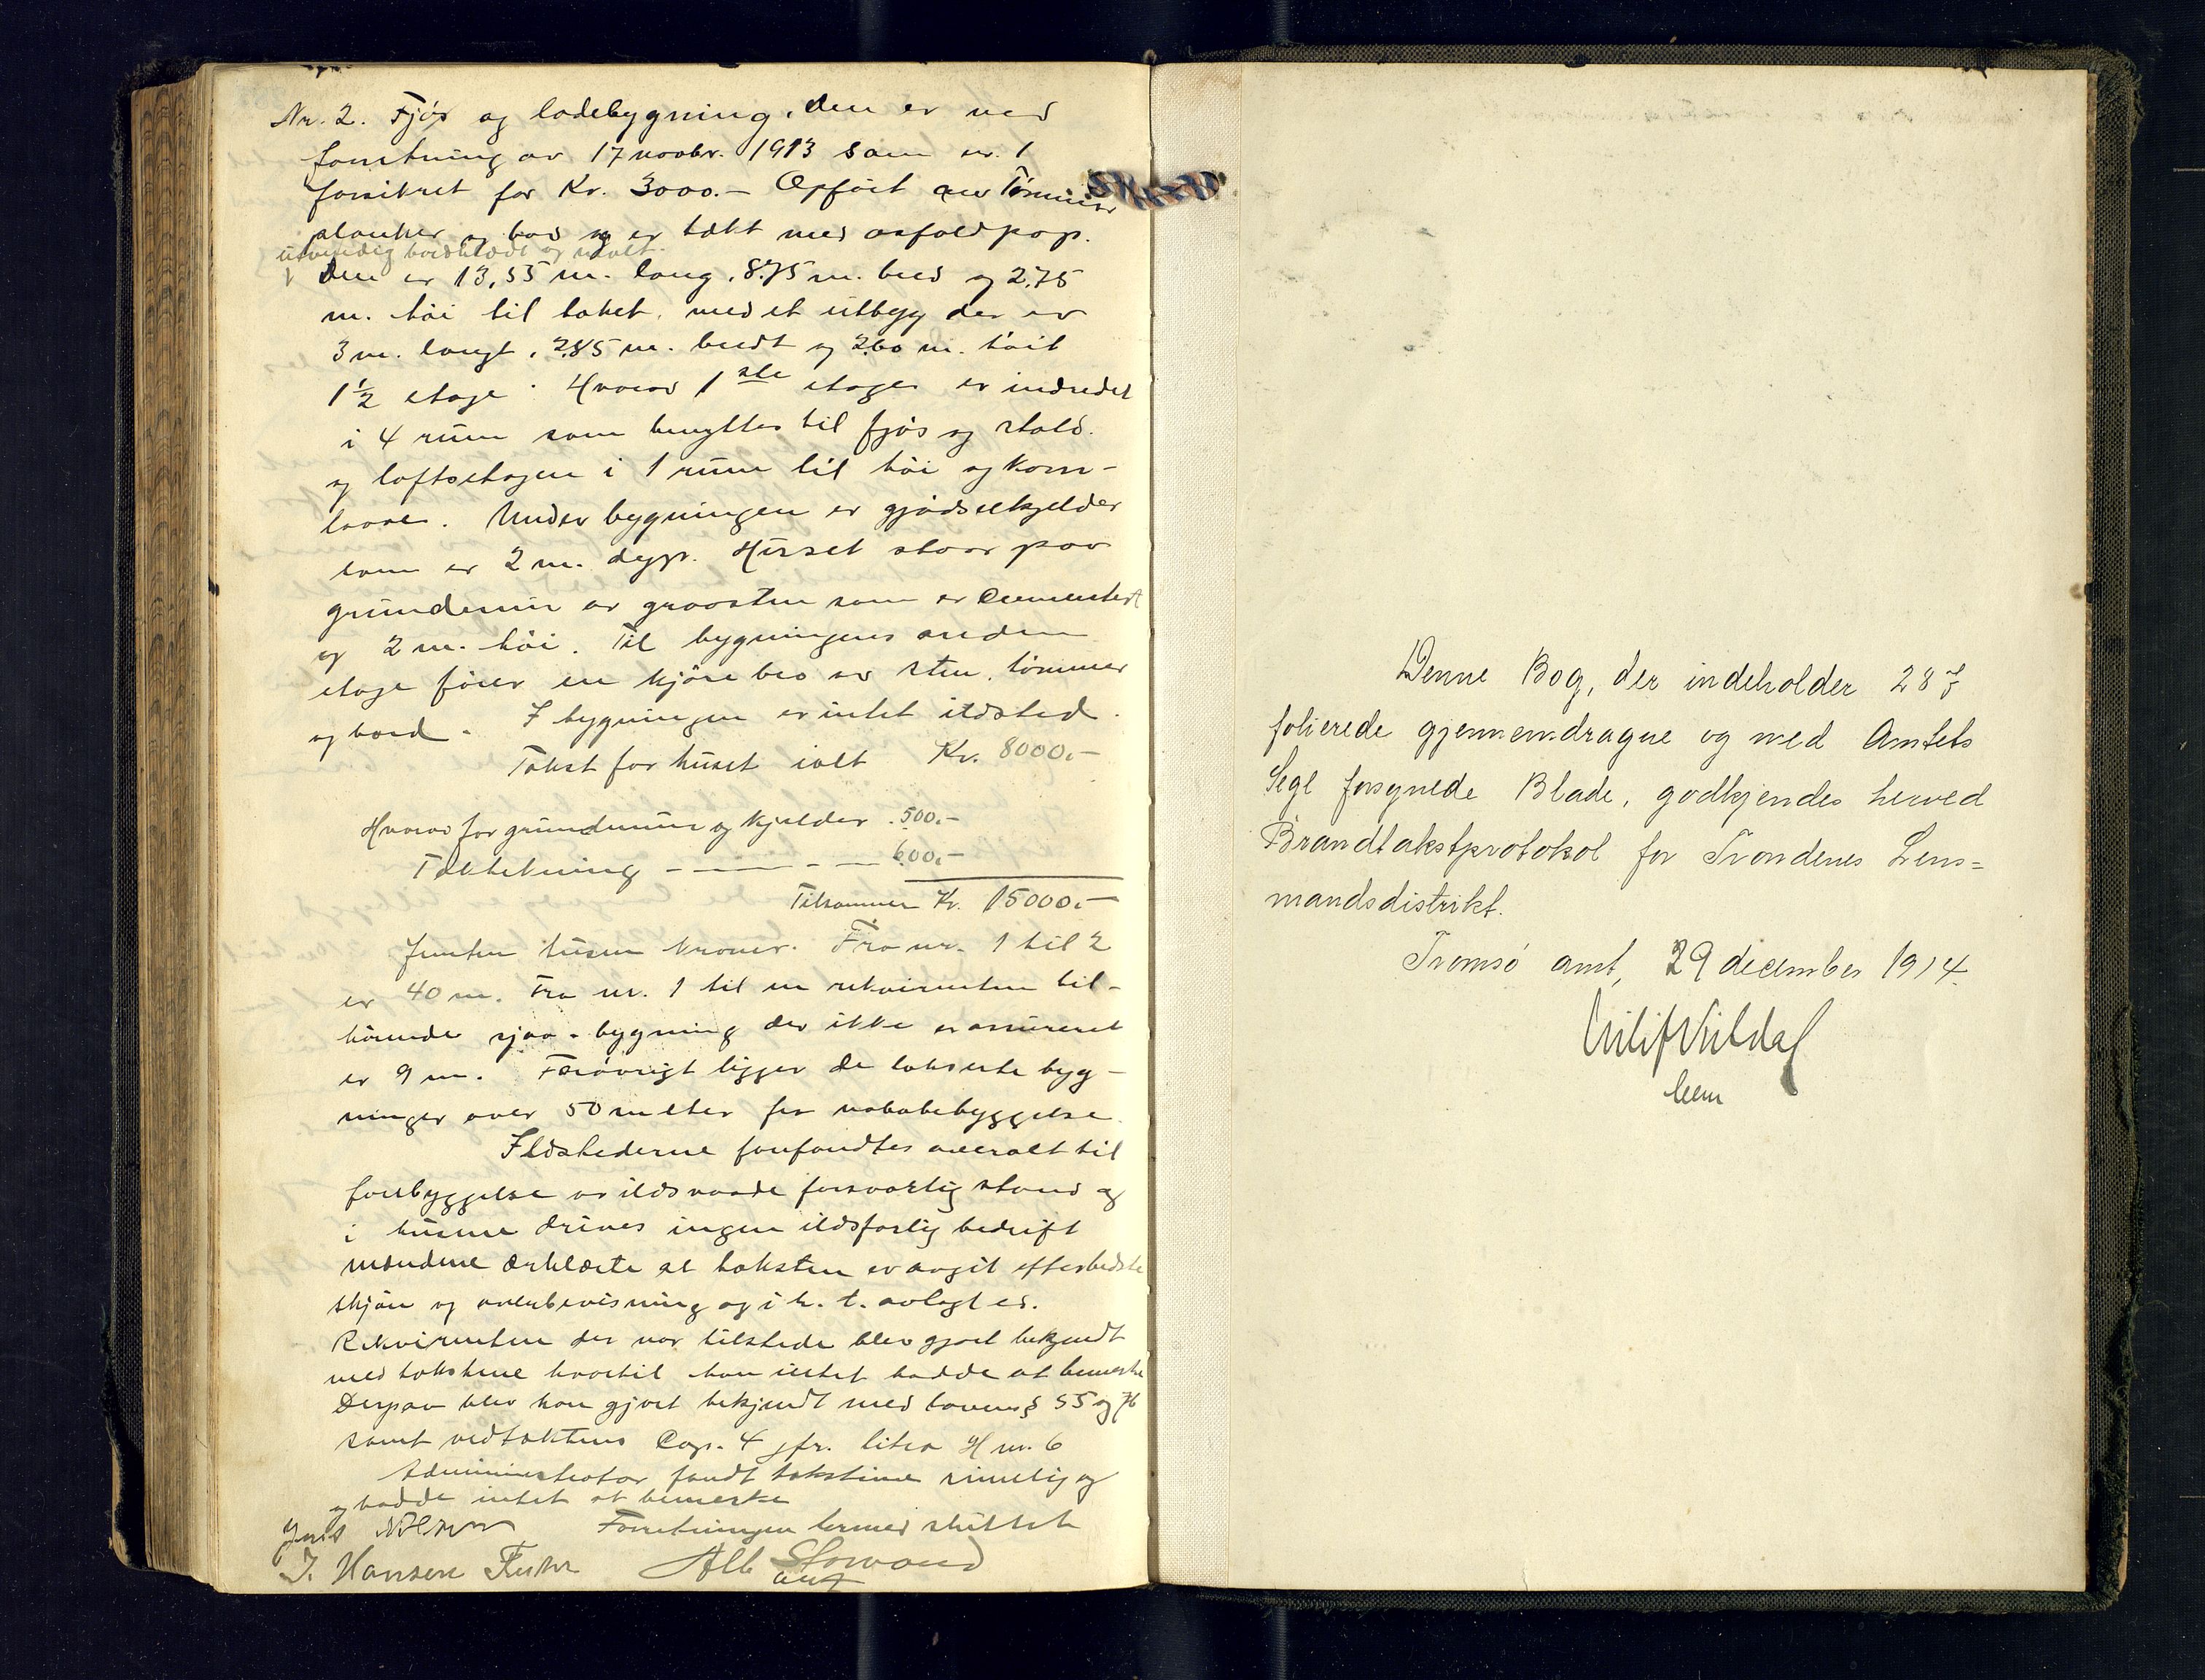 Nr. 2. Fjøs og ladebygning. Den er ved
forretning av 17 novbr. 1913 som nr. 1
forsikret for Kr. 3000.- Opført av Tømmer
planker og bord og er tækt med asfaldpap.
utvendig bordklædt og malt.
Den er 13,55 m. lang, 8,75 m. bred og 2,75
m. høi til taket, med et utbygg der er
3 m. langt, 2,85 m. bredt og 2,60 m. høit
1½ etage. Hvorav 1ste etage er indredet
i 4 rum som benyttes til fjøs og stald.
og loftsetagen i 1 rum til høi og korn-
laave. Under bygningen er gjødselkjelder
som er 2 m. dyp. Huset staar paa
grundmur av graasten som er Cementert
og 2 m. høi. Til bygningens anden
etage fører en kjørebro av sten, tømmer
og bord. I bygningen er intet ildsted.
Takst for huset ialt Kr. 8000.-
Hvorav for grundmur og kjelder . 500.-
Taktekning - — - — 600.-
Tilsammen Kr. 15000.-
Femten tusen kroner. Fra nr. 1 til 2
er 40 m. Fra nr. 1 til en rekvirenten til-
hørende sjaa-bygning der ikke er assureret
er 9 m. Forøvrigt ligger de takserte byg-
ninger over 50 meter fra nabobebyggelse.
Ildstederne forefandtes overalt til
forebyggelse av ildsvaade forsvarlig stand og
i husene drives ingen ildsfarlig bedrift
mændene erklærte at taksten er avgit efter bedste
skjøn og overbevisning og i h. t. avlagt ed.
Rekvirenten der var tilstede blev gjort bekjendt
med takstene hvortil han intet hadde at bemerke
Derpaa blev han gjort bekjendt med lovens § 55 og 76
samt vedtæktens Cap. 4 jfr. litra H nr. 6
Administrator fandt takstene rimelig og
og hadde intet at bemerke
Forretningen hermed sluttet
Jens Nilsen
J. Hansen Alb
Denne Bog, der indeholder 287
folierede gjennemdragne og med Amtets
Segl forsynede Blade, godkjendes herved
Brandtakstprotokol for Trondenes Lens=
mandsdistrikt.
Tromsø amt, 29 december 1914.